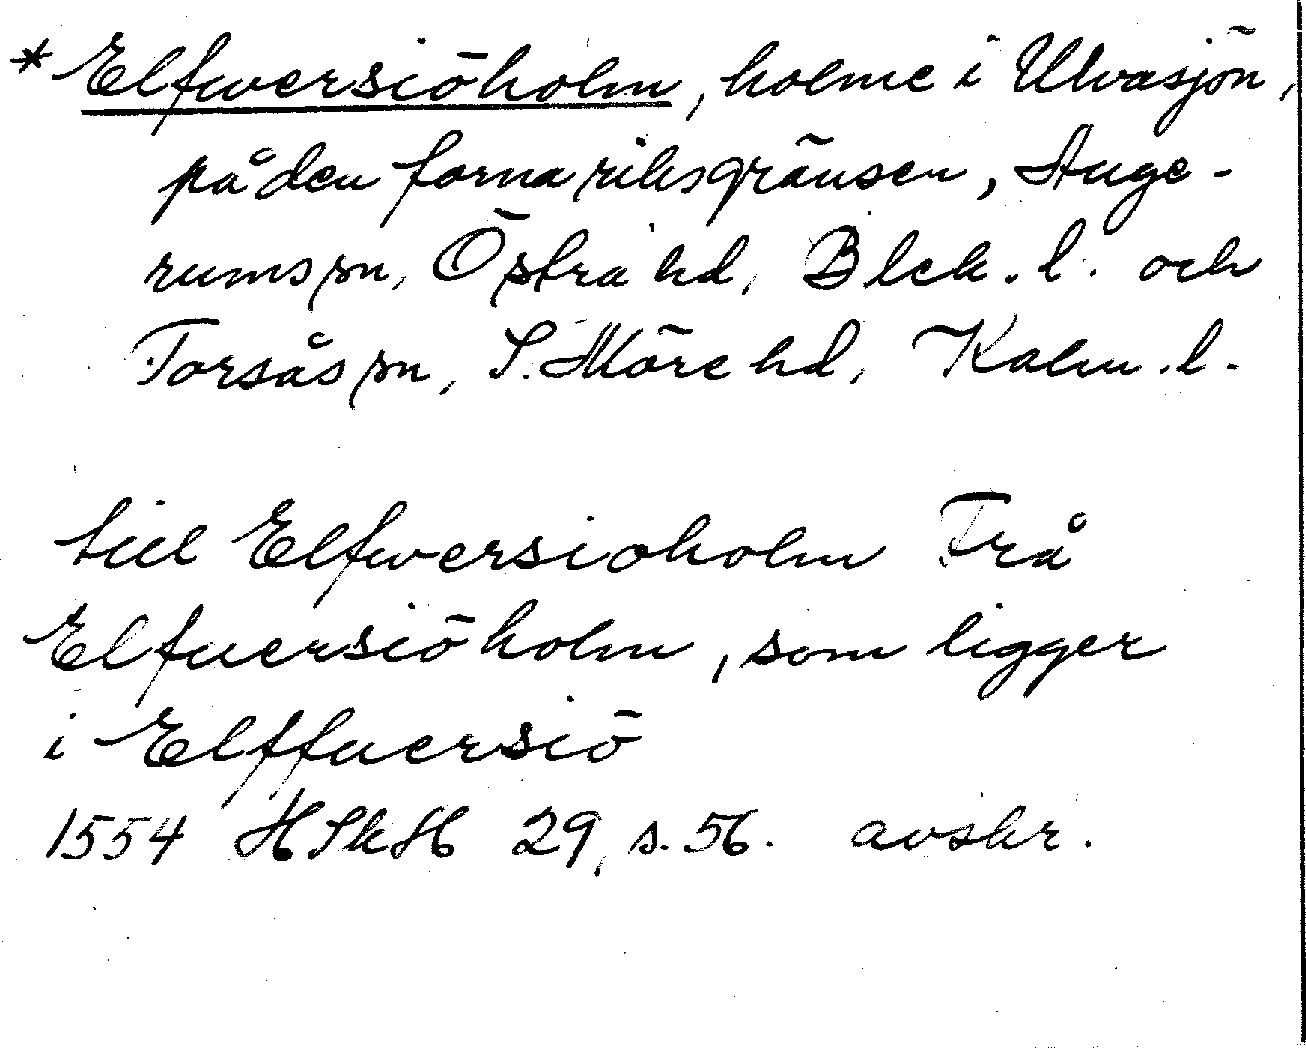 * Elfwersiöholm, holme i Ulvasjön,
på den forna riksgränsen, Auge-
rums sn, Östra hd, Blek. l. och
Torsås sn, S. Möre hd, Kalm. l.
till Elfwersioholm Frå
Elfuersiöholm, som ligger
i Elffuersiö
1554 HSkH 29, s. 56. avskr.